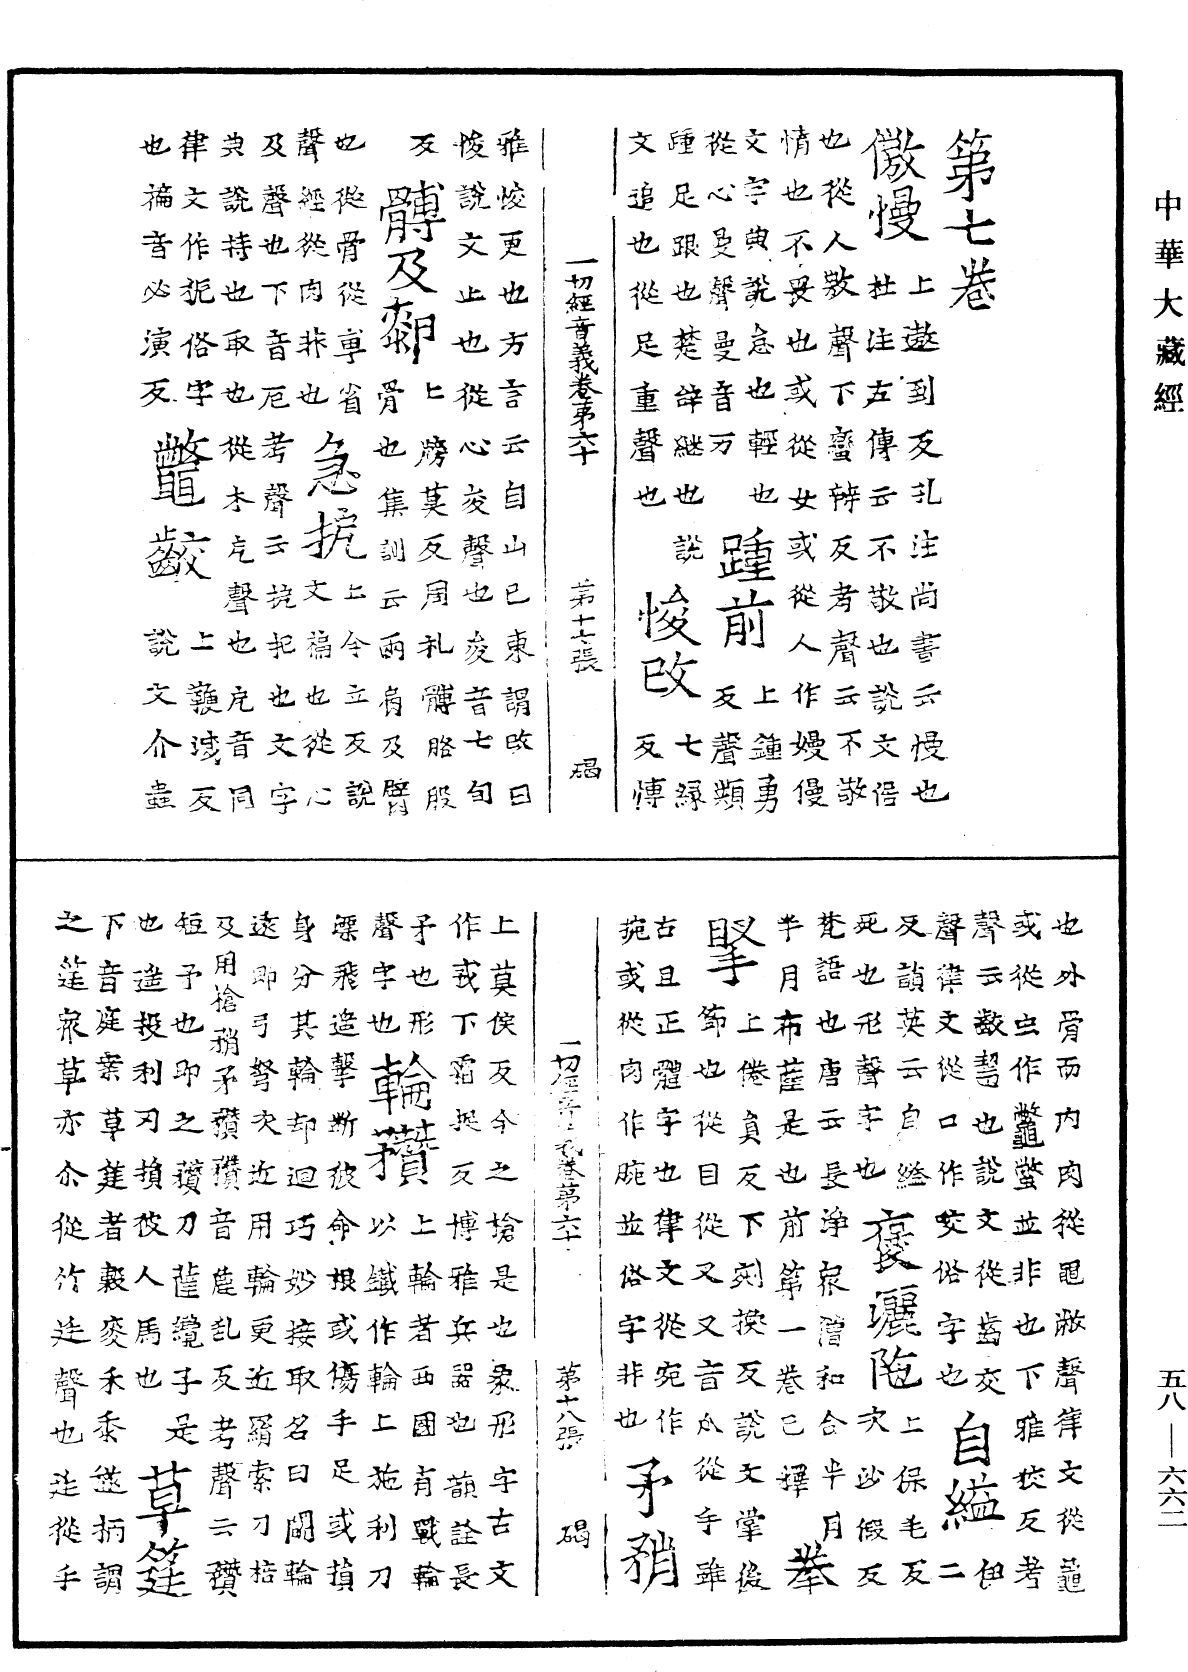 中華大藏經
第七卷
傲慢 上遨到反孔注尚書云慢也
杜注左傳云不敬也說文倨
也從人敖聲下蠻辦反考聲云不敬
情也不畏也或從女或從人作嫚僈
文字典說怠也輕也 踵前 上鍾勇
從心曼聲曼音万 反聲類
踵足跟也楚辞継也說 七緣
文追也從足重聲也 悛改 反博
一切經音義卷第六十 第十七張 碣
雅悛更也方言云自山已東謂改曰
悛說文止也從心夋聲也夋音七旬
反 髆及䣛 上膀莫反周礼髆胳股
骨也集訓云兩肩及臂
也從骨從尃省 急抳 上今立反說
聲經從肉非也 文褊也從心
及聲也下音厄考聲云搤把也文字
典說持也取也從木戹聲也戹音同
律文作扼俗字 鼈齩 上鞭滅反
也褊音必演反 說文介蟲
也外骨而内肉從黽敝聲律文從龜
或從虫作鼈蟞並非也下雅狡反考
聲云齩齧也說文從齒交 自縊 伊
聲律文從口作咬俗字也 二
反韻英云自經 褒灑陁 上保毛反
死也形聲字也 次沙假反
梵語也唐云長淨衆僧和合半月
半月布薩是也前第一卷已擇 拳
掔 上倦員反下剜換反說文掌後
節也從目從又又音
古且正體字也律文從宛作
捥或從肉作腕並俗字非也 矛矟
一切經音義卷第六十 第十八張 碣
上莫侯反今之搶是也象形字古文
作𢦧下霜捉反博雅兵器也韻詮長
矛也形 輪䂎 上輪者西國有戰輪
聲字也 以鐵作輪上施利刀
㮚飛遥擊斷彼命根或傷手足或損
身分其輪却迴巧妙接取名曰鬪輪
遠即弓弩次近用輪更近羂索刀棓
及用槍矟矛䂎䂎音麁乱反考聲云䂎
短矛也即之䂎刀䕯纔子是
也遥投利刃損彼人馬也 草筳
下音庭案草筳者穀麥禾黍莛柄謂
之莛衆草亦尒從竹廷聲也廷從手
五八—六六二